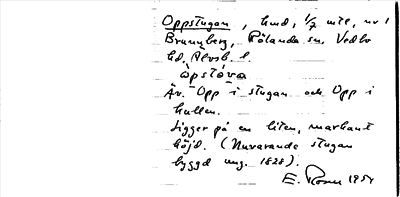 Oppstugan, hmd, 1/7 mtl, nv i
Brunnberg, Rölanda sn, Vedbo
hd, Älvsb. l.
òpstóva
Äv. Opp i stugan och Opp i
kullen.
Ligger på en liten, markant
höjd. (Nuvarande stugan
byggd omg. 1828).
E. Rosen 1954